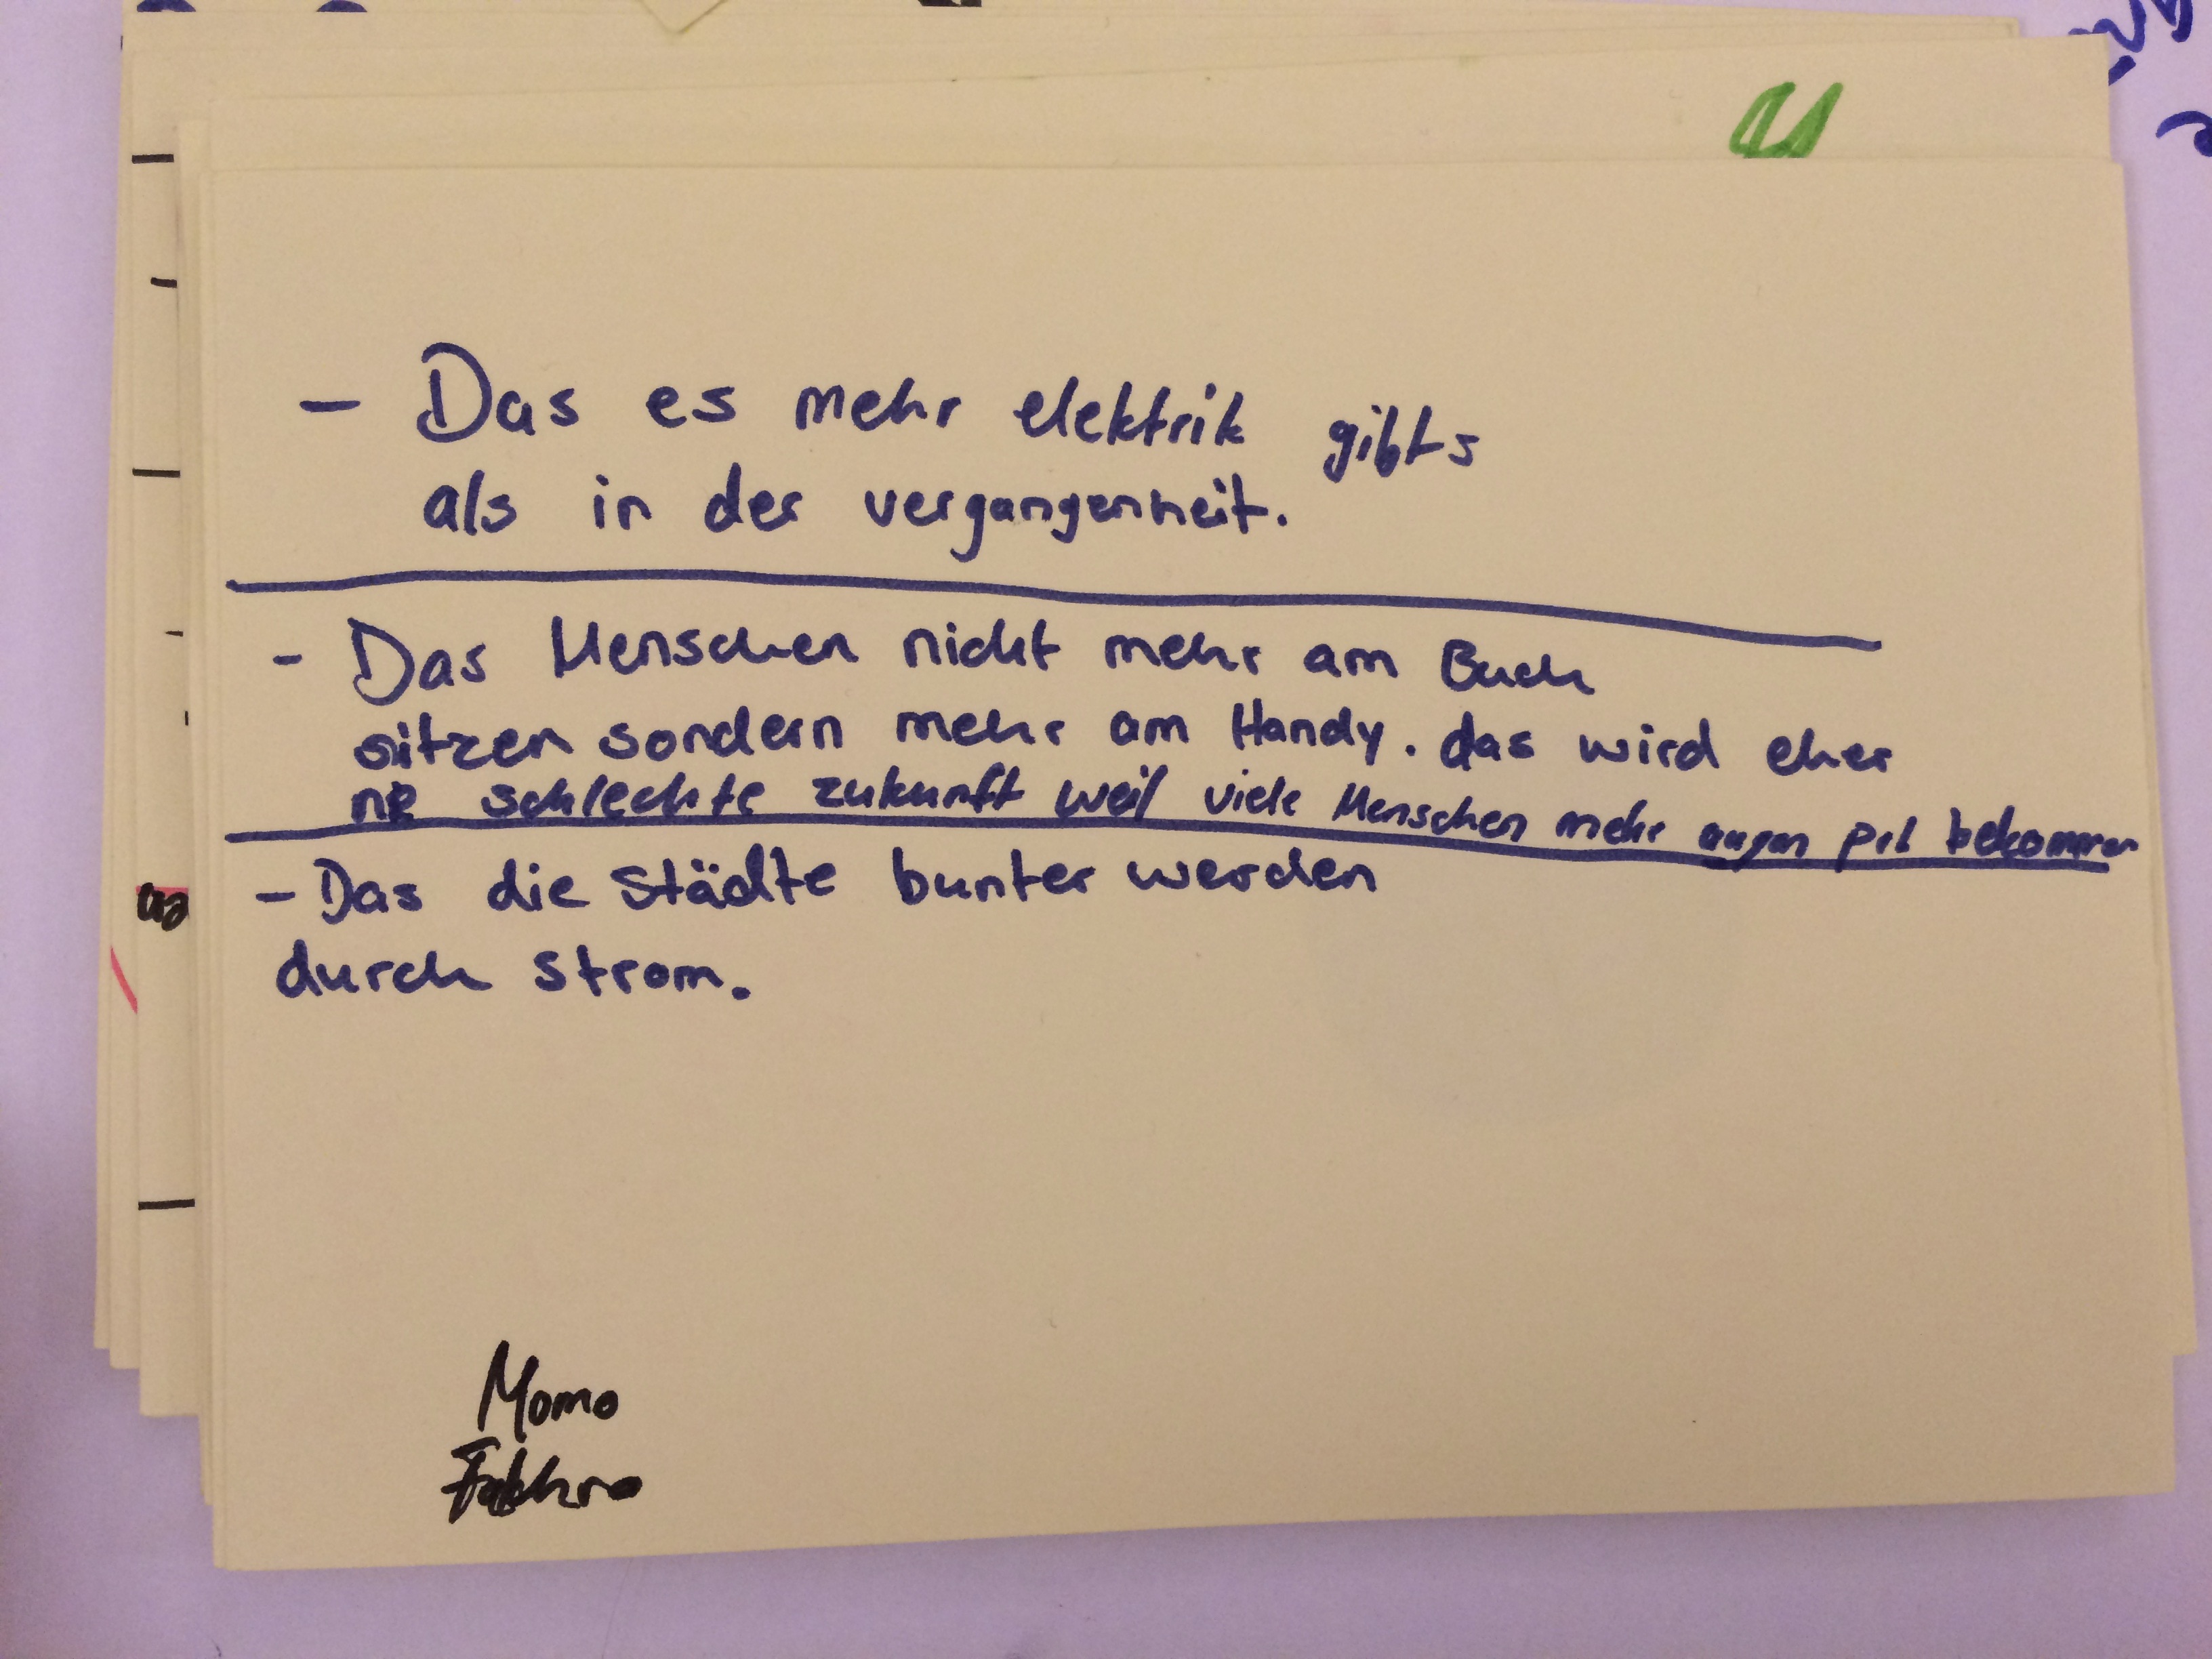 - Das es mehr elektrik gibts
als in der vergangenheit.
- Das Menschen nicht mehr am Buch
sitzen sondern mehr am Handy. das wird eher
ne schlechte zukunft weil viele Menschen mehr augen prb bekommen
- Das die Städte bunter werden
durch Strom.
Momo